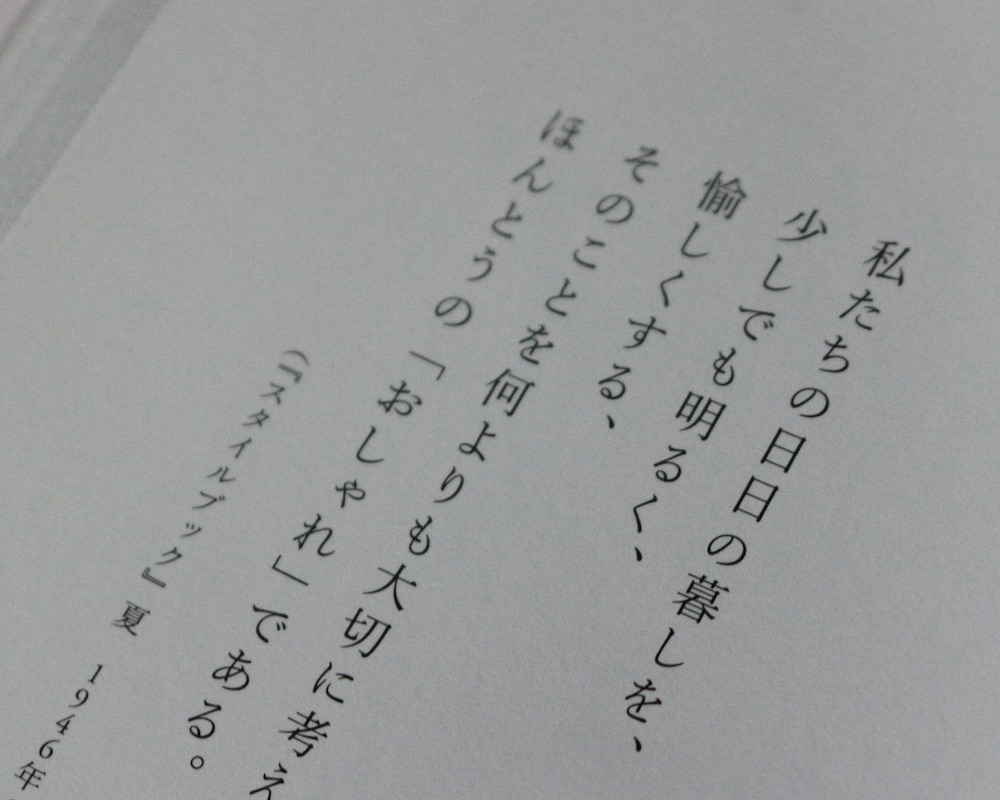 私たちの日日の暮しを、
少しでも明るく、
愉しくする、
そのことを何よりも大切に考え
ほんとうの「おしゃれ」である。
(『スタイルブック』夏　1946年